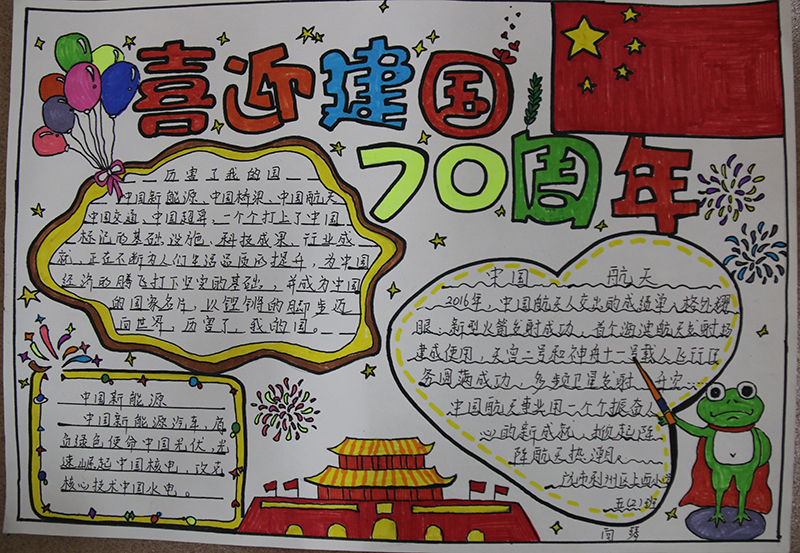 喜迎建国
70周年
历害了我的国
中国新能源、中国桥梁、中国航天
中国交通、中国超算,一个个打上了中国
标记的基础设施、科技成果、行业成
就,正在不断为人们生活品质的提升,为中国
经济的腾飞打下坚实的基础,并成为中国
的国家名片,以铿锵的脚步迈
向世界,历害了,我的国。
中国新能源
中国新能源汽车,肩
负绿色使命中国光伏,光
速崛起中国核电,改克
核心技术中国水电。
中国 航天
2016年,中国航天人交出的成绩单人格外耀
眼:新型火箭发射成功,首个海津航天发射场
建成使用,天宫二号和神舟十一号载人飞行任
务圆满成功,多频卫星发射、升空...
中国航天事业用一个个振奋人
心的新成就,掀起阵
阵航天热潮。
利州区上西小学
五(2)班